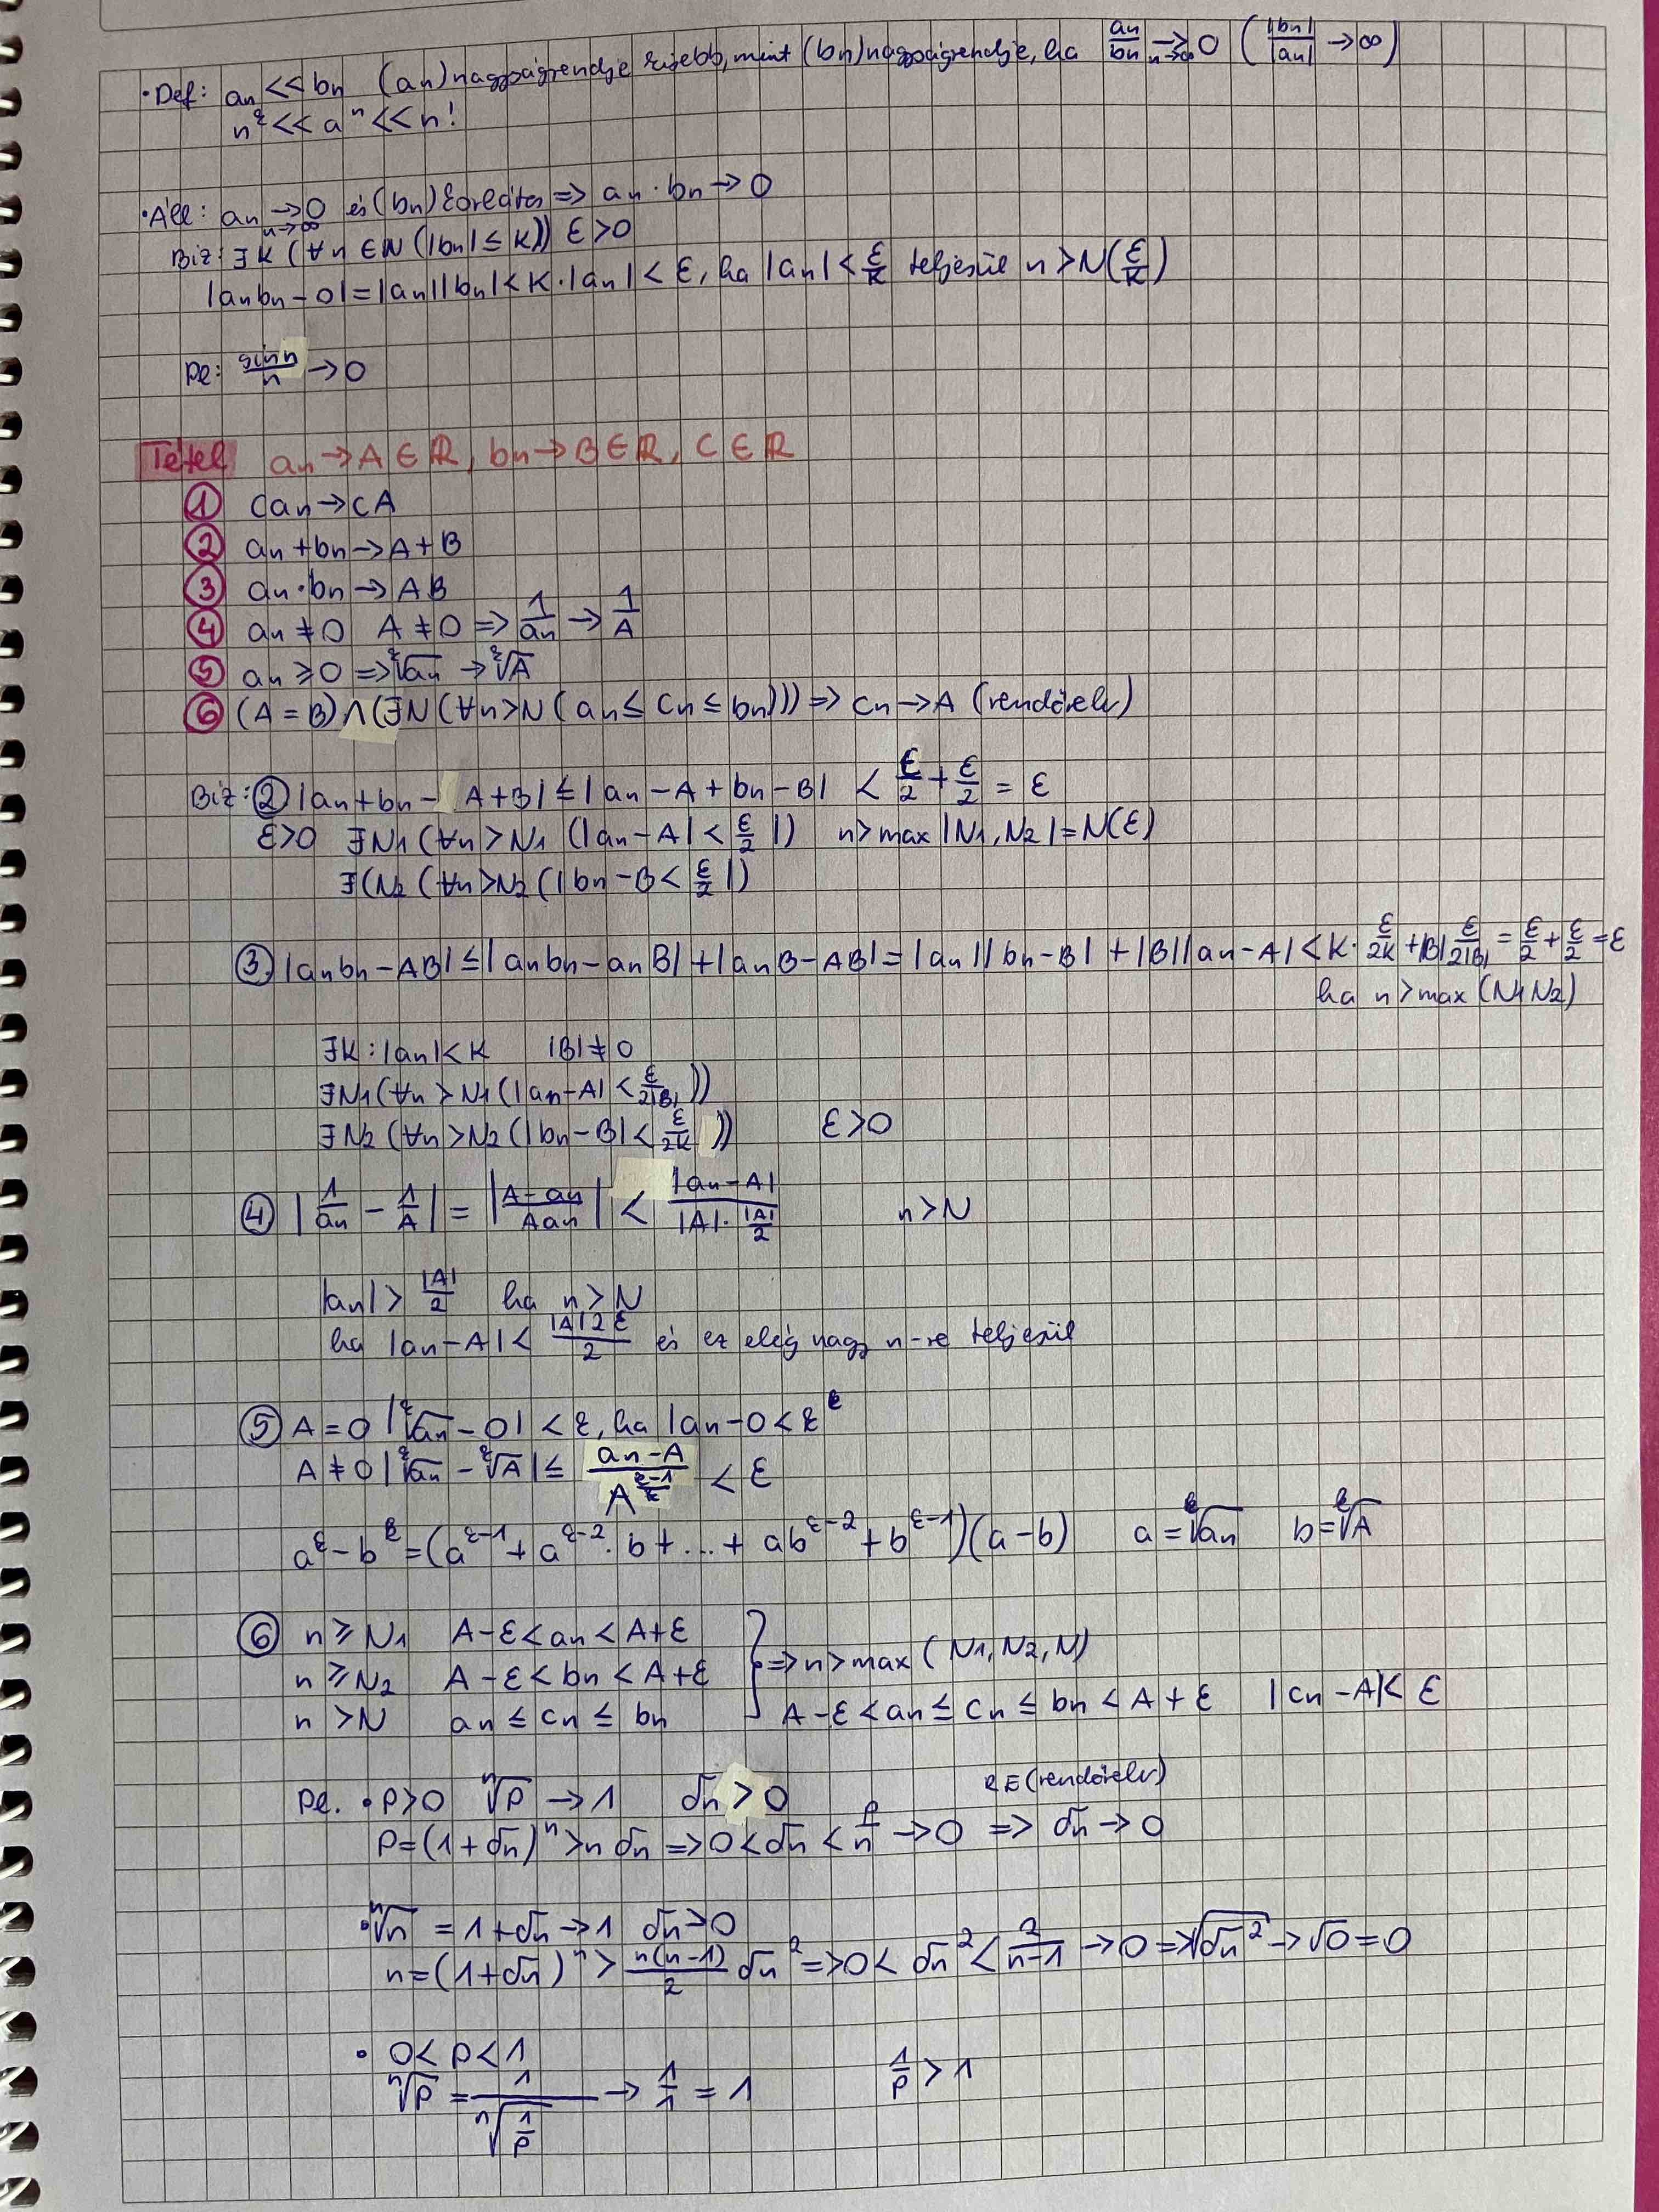 • Def: an << bn (an) nagyságrendje kisebb, mint (bn) nagyságrendje, ha an/bn →n→∞ 0 (|bn|/|an| → ∞)
n^k << a^n << n!
• Áll: an →n→∞ 0 és (bn) korlátos => an · bn → 0
Biz: ∃K (∀n ∈ N (|bn| ≤ K)) ε > 0
|anbn - 0| = |an||bn| < K·|an| < ε, ha |an| < ε/K teljesül n > N(ε/K)
Pl: sinn/n → 0
Tétel an → A ∈ ℝ, bn → B ∈ ℝ, C ∈ ℝ
① can → cA
② an + bn → A + B
③ an · bn → AB
④ an ≠ 0 A ≠ 0 => 1/an → 1/A
⑤ an ≥ 0 => ᵏ√an → ᵏ√A
⑥ (A = B) ∧ (∃N (∀n > N (an ≤ cn ≤ bn))) => cn → A (rendőrelv)
Biz: ② |an + bn - A + B| ≤ |an - A + bn - B| < ε/2 + ε/2 = ε
ε > 0 ∃N1 (∀n > N1 (|an - A| < ε/2 |) n > max |N1, N2| = N(ε)
∃(N2 (∀n > N2 (|bn - B < ε/2 |)
③ |anbn - AB| ≤ |anbn - anB| + |anB - AB| = |an||bn - B| + |B||an - A| < K · ε/2K + |B| ε/2|B| = ε/2 + ε/2 = ε
ha n > max (N1 N2)
∃K : |an| < K |B| ≠ 0
∃N1 (∀n > N1 (|an - A| < ε/2|B| ))
∃N2 (∀n > N2 (|bn - B| < ε/2K )) ε > 0
④ |1/an - 1/A| = |A - an / Aan| < |an - A| / |A| · |A|/2 n > N
|an| > |A|/2 ha n > N
ha |an - A| < |A|2 ε/2 és ez elég nagy n-re teljesül
⑤ A = 0 |ᵏ√an - 0| < ε, ha |an - 0 < ε^k
A ≠ 0 |ᵏ√an - ᵏ√A| ≤ an - A / A^(k-1/k) < ε
a^k - b^k = (a^(k-1) + a^(k-2) · b + ... + ab^(k-2) + b^(k-1))(a - b) a = ᵏ√an b = ᵏ√A
⑥ n ≥ N1 A - ε < an < A + ε
n ≥ N2 A - ε < bn < A + ε } => n > max (N1, N2, N)
n > N an ≤ cn ≤ bn A - ε < an ≤ cn ≤ bn < A + ε |cn - A| < ε
Pl. • p > 0 ⁿ√p → 1 δn > 0 RE (rendőrelv)
p = (1 + δn)^n > n δn => 0 < δn < p/n → 0 => δn → 0
• ⁿ√n = 1 + δn → 1 δn > 0
n = (1 + δn)^n > n(n-1)/2 δn^2 => 0 < δn^2 < 2/n-1 → 0 => √δn^2 → √0 = 0
• 0 < p < 1
ⁿ√p = 1/ⁿ√(1/p) → 1/1 = 1 1/p > 1